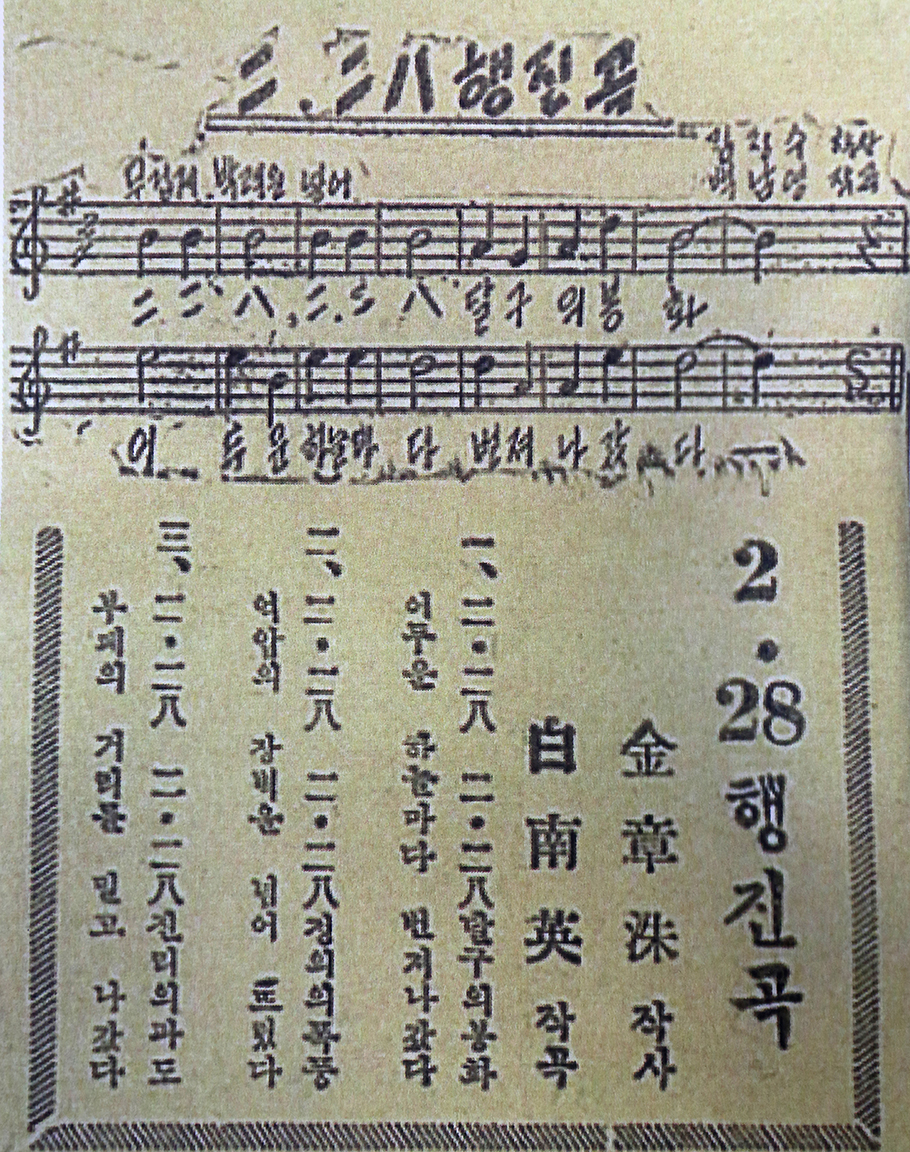 二.二八행진곡
김장수 작사
백남영 작곡
무겁게 박력을 넣어
二 二 八, 二.二 八 달구 의봉 화
어 두운 하늘마 다 번져 나갔 다
2·28행진곡
金章洙 작사
白南英 작곡
一、二·二八 二·二八달구의봉화
어두운 하늘마다 번저나갔다
二、二·二八 二·二八정의의폭풍
억압의 장벽을 넘어
三、二·二八 二·二八진리의파도
부패의 거리를 밀고 나갔다